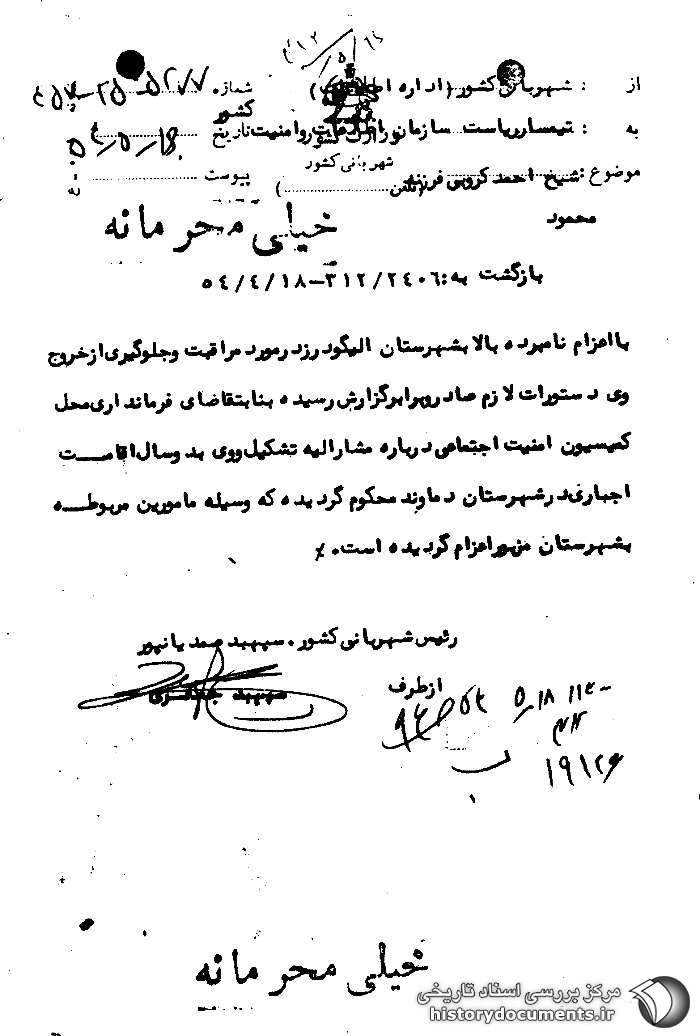 ۳۱۲
از : شهربانی کشور (اداره اطلاعات) شماره ۵۲۷۷-۲۵-
به : تیمسار ریاست سازمان اطلاعات و امنیت کشور تاریخ ۱۸/۵/
وزارت کشور
شهربانی کشور
موضوع : شیخ احمد کروبی فرزند (تلفن ) پیوست
محمود
خیلی محرمانه
بازگشت به: ۳۱۲/۲۴۰۶-۵۴/۴/۱۸
با اعزام نامبرده بالا بشهرستان الیگودرز در مورد مراقبت و جلوگیری از خروج
وی دستورات لازم صادر و برابر گزارش رسیده بنا بتقاضای فرمانداری محل
کمیسیون امنیت اجتماعی درباره مشارالیه تشکیل و وی بدو سال اقامت
اجباری در شهرستان دماوند محکوم گردیده که وسیله مامورین مربوطه
بشهرستان مزبور اعزام گردیده است. ٪
رئیس شهربانی کشور . سپهبد صمدیانپور
از طرف سپهبد جعفری
۵/۱۸ ۱۱۳۰
۱۹۱۲۶
خیلی محرمانه
مرکز بررسی اسناد تاریخی
historydocuments.ir